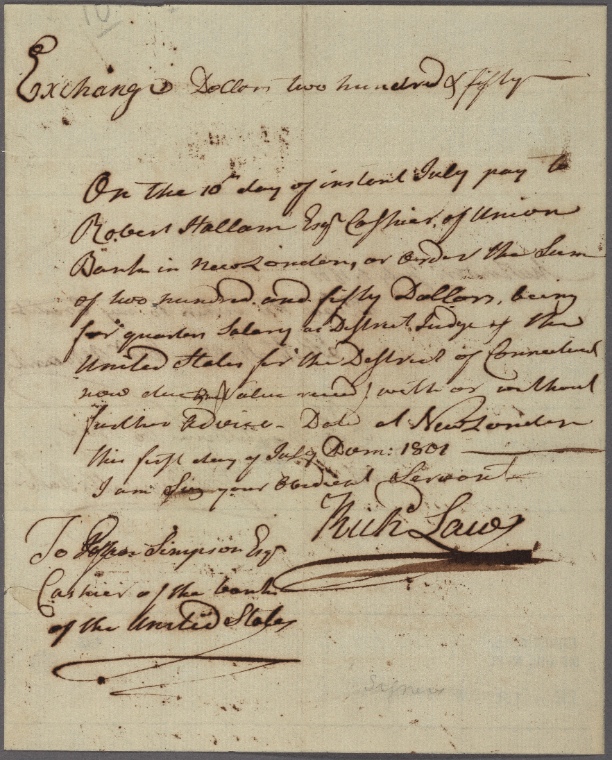 10
Exchange Dollars two hundred & fifty
On the 10th day of instant July pay to
Robert Hallam Esqr Cashier of Union
Bank in New London, or order the Sum
of two hundred and fifty Dollars, being
for quarters Salary as District Judge of the
United States for the District of Connecticut
now due Value recived with or without
further advice - Date at New London
this first day of July Dom: 1801
I am Sir your obedient Servant
Richd Law
To Simpson Esqr
Cashier of the bank
of the United States